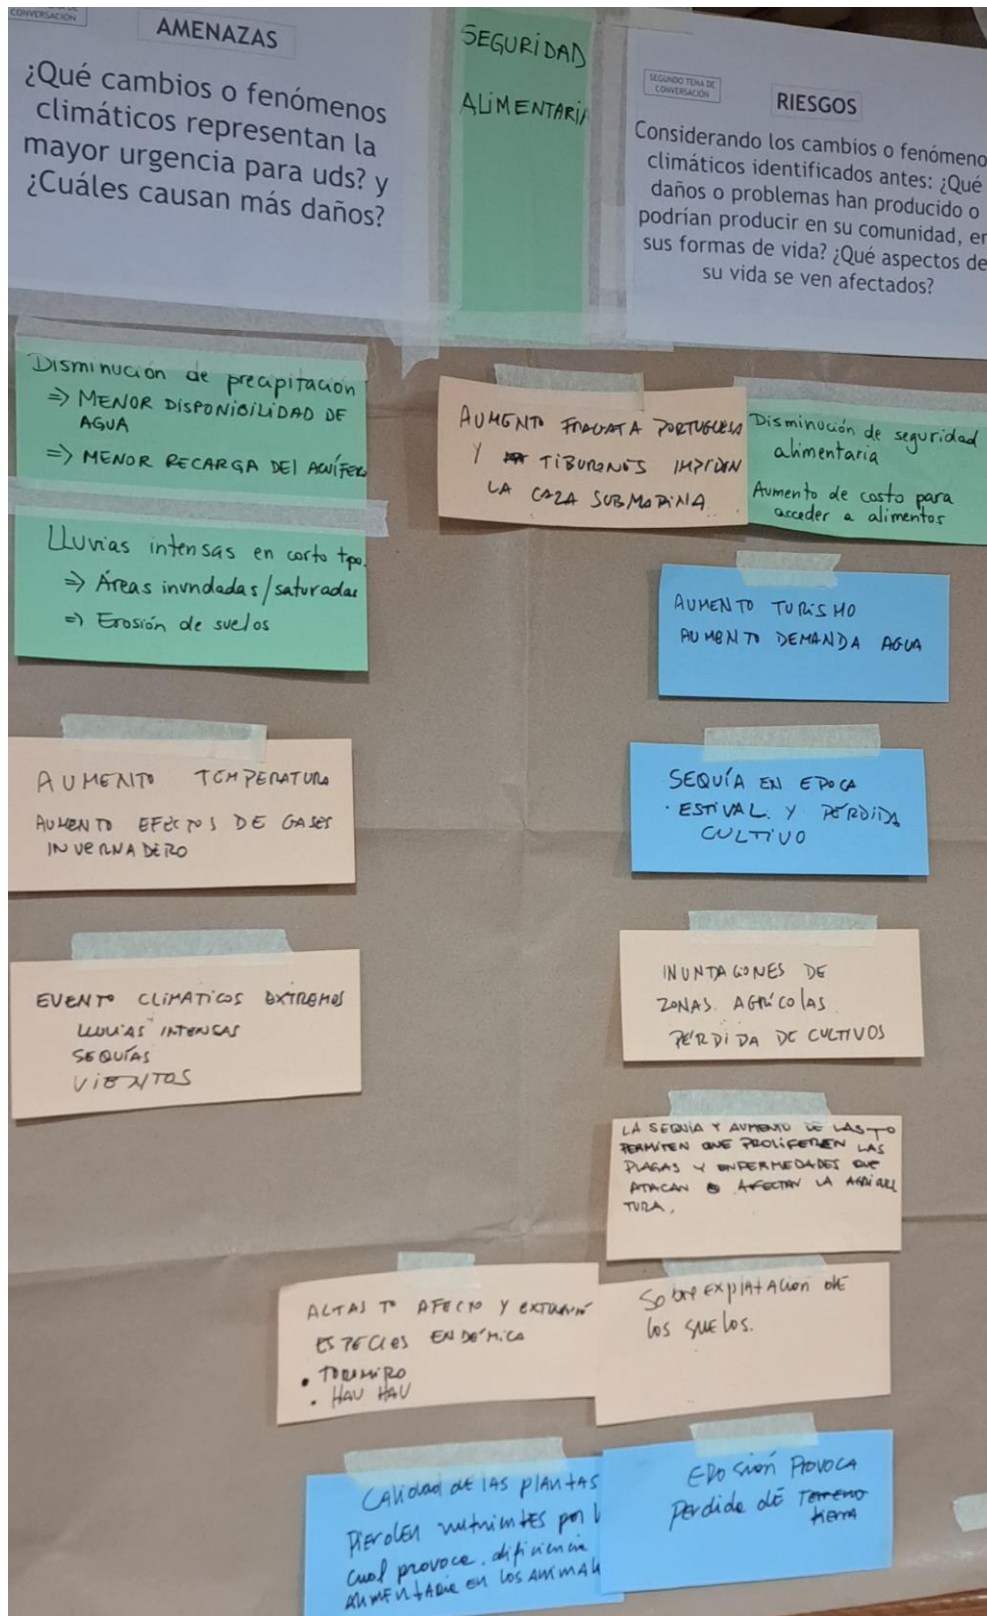 CONVERSACIÓN
AMENAZAS
¿Qué cambios o fenómenos
climáticos representan la
mayor urgencia para uds? y
¿Cuáles causan más daños?
SEGURIDAD
ALIMENTARIA
SEGUNDO TEMA DE
CONVERSACIÓN
RIESGOS
Considerando los cambios o fenómeno
climáticos identificados antes: ¿Qué
daños o problemas han producido o
podrían producir en su comunidad, en
sus formas de vida? ¿Qué aspectos de
su vida se ven afectados?
Disminución de precipitación
⇒ MENOR DISPONIBILIDAD DE
AGUA
⇒ MENOR RECARGA DEl ACUÍFERO
Lluvias intensas en corto tpo.
⇒ Áreas inundadas/saturadas
⇒ Erosión de suelos
AUMENTO TEMPERATURA
AUMENTO EFECTOS DE GASES
INVERNADERO
EVENTO CLIMATICOS EXTREMOS
LLUVIAS INTENSAS
SEQUÍAS
VIENTOS
AUMENTO FRAGATA PORTUGUESA
Y TIBURONES IMPIDEN
LA CAZA SUBMARINA
Disminución de seguridad
alimentaria
Aumento de costo para
acceder a alimentos
AUMENTO TURISMO
AUMENTO DEMANDA AGUA
SEQUÍA EN EPOCA
ESTIVAL. Y PÉRDIDA
CULTIVO
INUNDACIONES DE
ZONAS AGRÍCOLAS
PÉRDIDA DE CULTIVOS
LA SEQUÍA Y AUMENTO DE LAS TO
PERMITEN QUE PROLIFEREN LAS
PLAGAS Y ENFERMEDADES QUE
ATACAN AFECTAN LA AGRICUL
TURA.
ALTAS TO AFECTO Y EXTINCIÓN
ESPECIES ENDÉMICA
• TOROMIRO
• HAU HAU
Sobre explotación DE
los suelos.
Calidad de las plantas
Pierden nutrientes por l
cual provoca. dificiencia
Alimentaria en los animal
EROSIÓN PROVOCA
Perdida de terreno
tierra